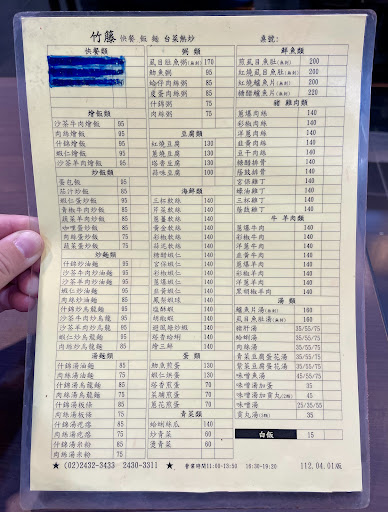 竹籐 快餐 飯 麵 台菜熱炒 桌號:
快餐類
燴飯類
沙茶牛肉燴飯 95
肉絲燴飯 95
什錦燴飯 95
蝦仁燴飯 95
沙茶炒飯類
蛋包飯 85
茄汁炒飯 85
蝦仁蛋炒飯 85
青椒牛肉炒飯 95
蔬菜羊肉炒飯 95
咖哩蛋炒飯 85
肉絲蛋炒飯 75
蔬菜蛋炒飯 75
炒麵類
什錦炒油麵 85
沙茶牛肉炒油麵 95
沙茶羊肉炒油麵 95
蝦仁炒油麵 95
肉絲炒油麵 75
什錦炒烏龍麵 85
沙茶牛肉炒烏龍麵 95
沙茶羊肉炒烏龍麵 95
蝦仁炒烏龍麵 95
肉絲炒烏龍麵 75
湯麵類
什錦湯油麵 85
肉絲湯油麵 75
什錦湯烏龍麵 85
肉絲湯烏龍麵 75
什錦湯板條 85
肉絲湯板條 75
什錦湯疙瘩 85
肉絲湯疙瘩 75
什錦湯米粉 85
肉絲湯米粉 75
粥類
虱目肚魚粥(無刺) 170
魩魚粥 95
蛤仔肉絲粥 85
皮蛋肉絲粥 85
什錦粥 95
肉絲粥 75
豆腐類
紅燒豆腐 130
蝦仁豆腐 130
塔香豆腐 130
蒜味豆腐 100
海鮮類
三杯軟絲 140
芹菜軟絲 140
蔥薑軟絲 140
黃金軟絲 140
彩椒軟絲 140
蒜泥軟絲 140
糖醋蝦仁 140
宮保蝦仁 140
彩椒蝦仁 140
蔥爆蝦仁 140
腰果蝦仁 140
鳳梨蝦球 140
塩酥蝦 140
胡椒蝦 140
避風糖炒蝦 140
塔香蛤蜊 140
燴三鮮 140
蛋類
魩魚煎蛋 130
蝦仁烘蛋 130
塔香煎蛋 70
菜脯煎蛋 70
蔥花煎蛋 70
青菜類
蛤蜊絲瓜 140
炒青菜 60
燙青菜 60
鮮魚類
煎虱目魚肚(無刺) 200
紅燒虱目魚肚(無刺) 200
紅燒鱸魚片(無刺) 200
糖醋鱸魚片(無刺) 220
豬 雞肉類
蔥爆肉絲 140
彩椒肉絲 140
洋蔥肉絲 140
韭黃肉絲 140
豆干肉絲 140
糖醋排骨 140
蔭豉排骨 140
宮保雞丁 140
蠔油雞丁 140
三杯雞丁 140
蔭豉雞丁 140
牛 羊肉類
蔥爆牛肉 140
彩椒牛肉 140
洋蔥牛肉 140
韭黃牛肉 140
蔥爆羊肉 140
彩椒羊肉 140
洋蔥羊肉 140
黑胡椒羊肉 140
湯 類
鱸魚片湯(無刺) 100
虱目魚肚湯(無刺) 100
豬肝湯 35/55/75
蛤蜊湯 35/55/75
肉絲湯 35/55/75
青菜豆腐蛋花湯 35/55/75
紫菜豆腐蛋花湯 35/55/75
味噌魚湯 35/55/75
味噌湯加蛋 35
味噌湯加貢丸(2顆) 45
味噌湯 25/35/55
貢丸湯(3顆) 35
白飯 15
★ (02)2432-3433 2430-3311 ★ 營業時間11:00-13:50 16:30-19:20 112.04.01版